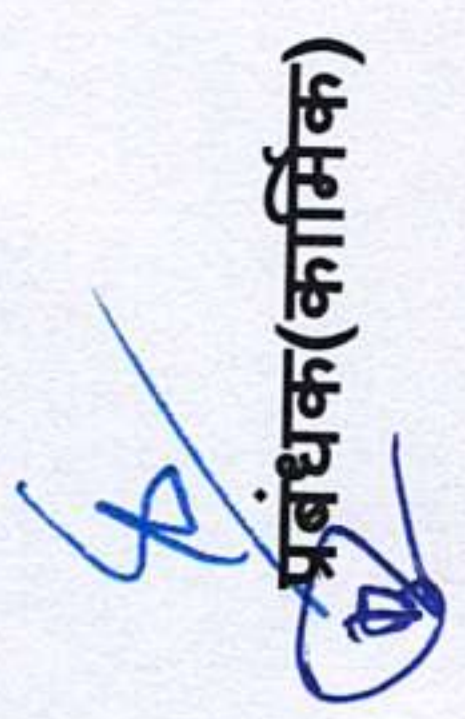 प्रबंधक(कार्मिक)